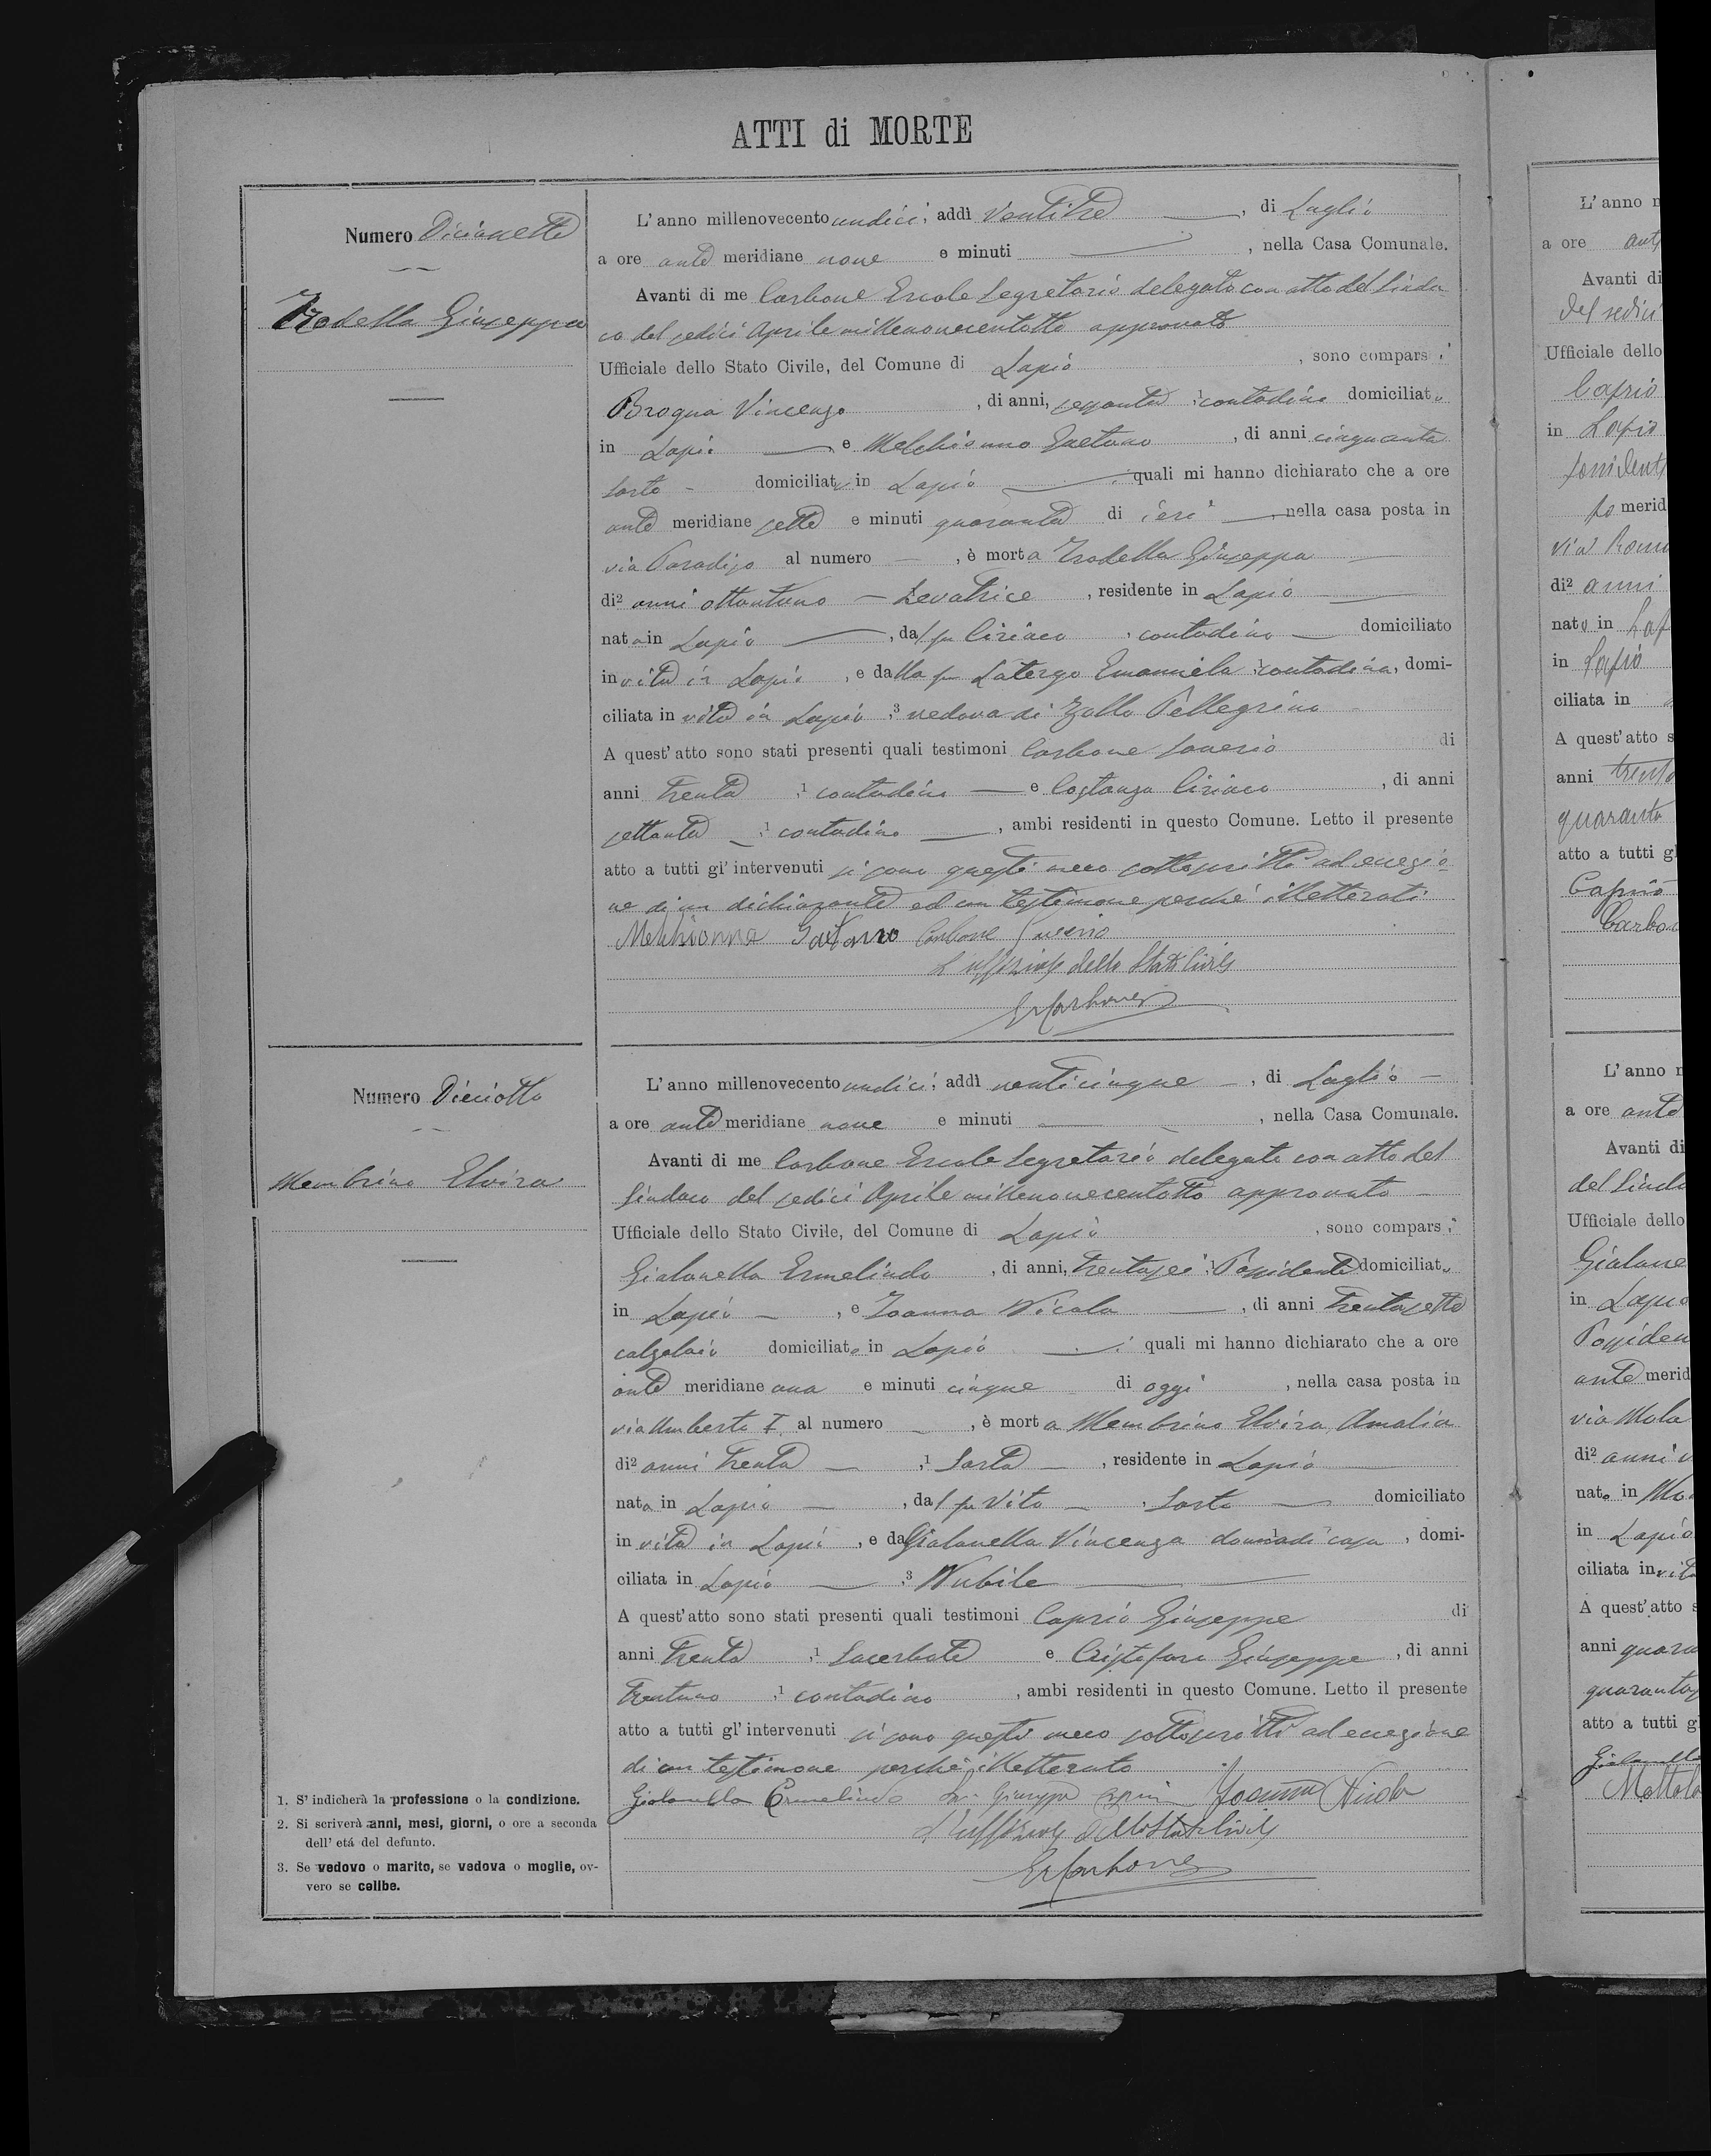 ATTI di MORTE
Numero Diciasette
Trodella Giuseppa
L'anno millenovecento undici, addì Ventitre, di Luglio
a ore ante meridiane nove e minuti, nella Casa Comunale.
Avanti di me Carbone Ercole Segretario delegato con atto del Sinda
co del sedici Aprile millenovecentotto approvato
Ufficiale dello Stato Civile, del Comune di Lapio, sono comparsi
Brogna Vincenzo, di anni, sessanta contadino domiciliato
in Lapio e Melchionno Gaetano, di anni cinquanta
sarto domiciliato in Lapio quali mi hanno dichiarato che a ore
ante meridiane sette e minuti quaranta di ieri, nella casa posta in
via Paradiso al numero, è morta Trodella Giuseppa
di2 anni ottantuno Levatrice, residente in Lapio
nata in Lapio, dal fu Ciriaco, contadino domiciliato
in vita in Lapio, e dalla fu Latergo Emanuela, 1 contadina, domi-
ciliata in vita in Lapio, 3 vedova di Zollo Pellegrino
A quest'atto sono stati presenti quali testimoni Carbone Saverio di
anni Trenta, 1 contadino e Costanza Ciriaco, di anni
settanta, 1 contadino, ambi residenti in questo Comune. Letto il presente
atto a tutti gl'intervenuti si sono questi meco sottoscritti ad eccezio
ne di un dichiarante ed un testimone perchè illetterati
Melchionna Gaetano Carbone Saverio
L'uffiziale dello Stato Civile
ErCarbone
Numero Dieciotto
Membrino Elvira
L'anno millenovecento undici, addì venticinque, di Luglio
a ore ante meridiane nove e minuti, nella Casa Comunale.
Avanti di me Carbone Ercole Segretario delegato con atto del
Sindaco del sedici Aprile millenovecentotto approvato
Ufficiale dello Stato Civile, del Comune di Lapio, sono comparsi
Gialanella Ermelindo, di anni, trentasei, Possidente domiciliato
in Lapio, e Ioanna Nicola, di anni Trentasette
calzolaio domiciliato in Lapio quali mi hanno dichiarato che a ore
ante meridiane una e minuti cinque di oggi, nella casa posta in
via Umberto I al numero, è morta Membrino Elvira Amalia
di2 anni Trenta, 1 Sarta, residente in Lapio
nata in Lapio, dal fu Vito, Sarto domiciliato
in vita in Lapio, e da Gialanella Vincenza donna di casa, domi-
ciliata in Lapio, 3 Nubile
A quest'atto sono stati presenti quali testimoni Caprio Giuseppe di
anni Trenta, 1 Sacerdote e Cristofaro Giuseppe, di anni
Trentuno, 1 contadino, ambi residenti in questo Comune. Letto il presente
atto a tutti gl'intervenuti si sono questi meco sottoscritti ad eccezione
di un testimone perchè illetterato
Gialanella Ermelindo Giuseppe Caprio Ioanna Nicola
L'uffiziale dello Stato Civile
ErCarbone
1. S'indicherà la professione o la condizione.
2. Si scriverà anni, mesi, giorni, o ore a seconda
dell'etá del defunto.
3. Se vedovo o marito, se vedova o moglie, ov-
vero se celibe.
L'anno
a ore ant
Avanti di
del sedici
Ufficiale dello
Caprio
in Lapio
possident
po merid
via Roma
di2 anni
nato in Lap
in Lapio
ciliata in
A quest'atto s
anni trenta
quaranta
atto a tutti g
Caprio
Carbo
L'anno
a ore ante
Avanti di
del Sinda
Ufficiale dello
Gialane
in Lapio
Possiden
ante merid
via Mola
di2 anni
nato in Mo
in Lapio
ciliata in vita
A quest'atto s
anni quara
quarantas
atto a tutti g
Gialanella
Mottola